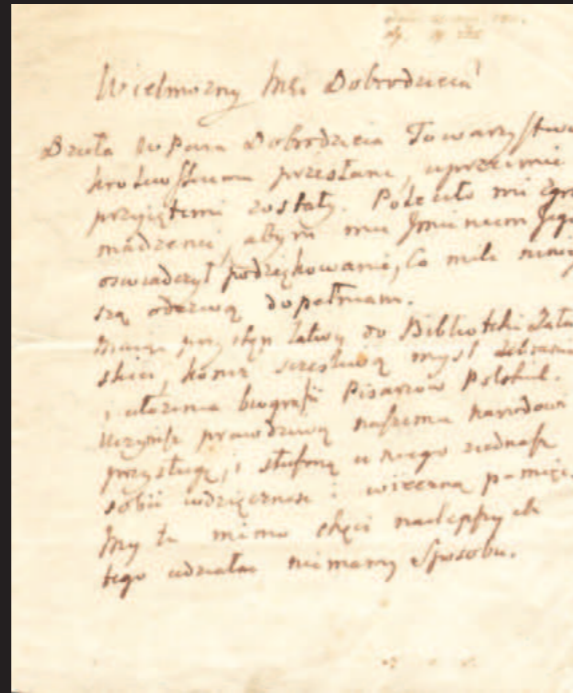 Wielmożny Mci Dobrodzieiu
Dzieła WPana Dobrodzieia Towarzystwu
przesłane, uprzeimie
przyiętemi zostały. Poleciło mi Zgro-
madzenie, abym mu Imieniem Jego
oswiadczył podziękowanie, Co mile
szą odezwą dopełniam.
Maiąc przystęp łatwy do Biblioteki Zału-
skiej, szczęśliwą myśl zebrania
i ułożenia biografii Pisarzów Polskich.
Uczynisz prawdziwą naszemu narodowi
przysługę, i słuszną u niego ziednasz
sobie wdzięczność i wieczną pamięć.
My tu mimo chęci naylepszych
tego udziałać niemamy Sposobu.